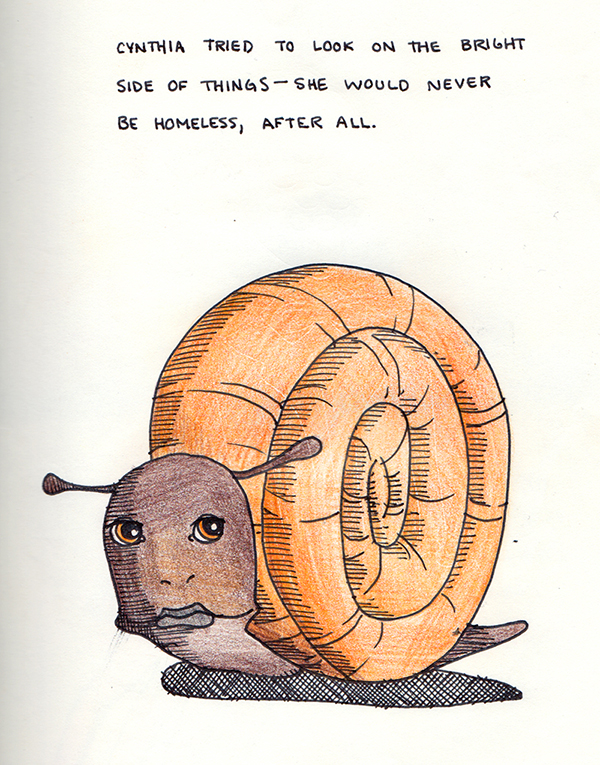 CYNTHIA TRIED TO LOOK ON THE BRIGHT
SIDE OF THINGS — SHE WOULD NEVER
BE HOMELESS, AFTER ALL.